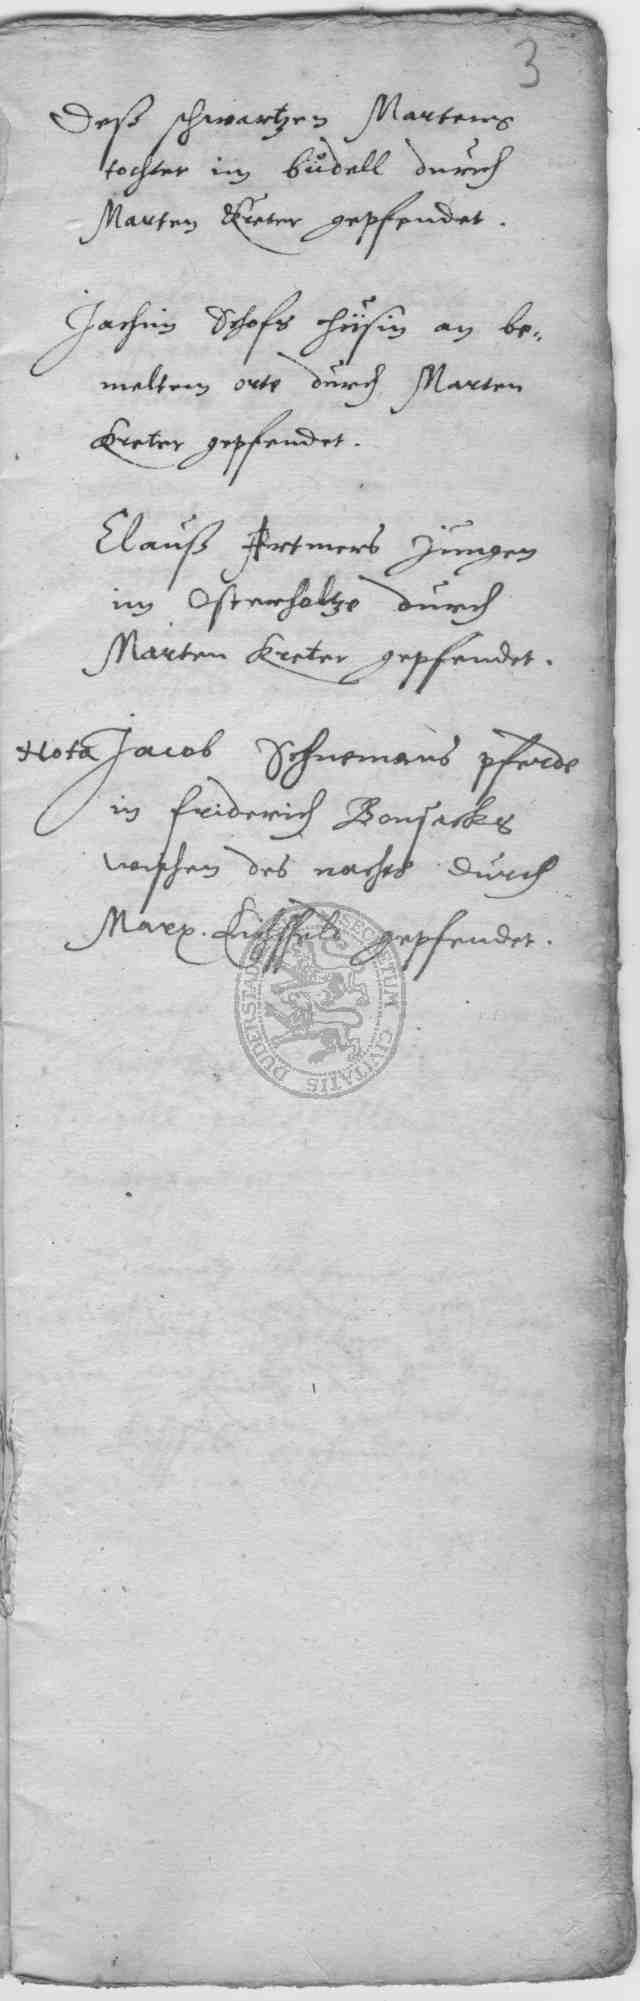 3
Deß schwartzen Martens
tochter im büdell durch
Marten Kreter gepfendet.
Jachim Schofs hüsin an be„
meltem orte durch Marten
Kreter gepfendet.
Clauß Artmers Jungen
im Osterholtze durch
Marten Kreter gepfendet.
Nota Jacob Schnemans pferde
in friderich Bonsacks
wischen des nachts durch
Marx. gepfendet.
SECRETUM CIVITATIS DUDERSTAD